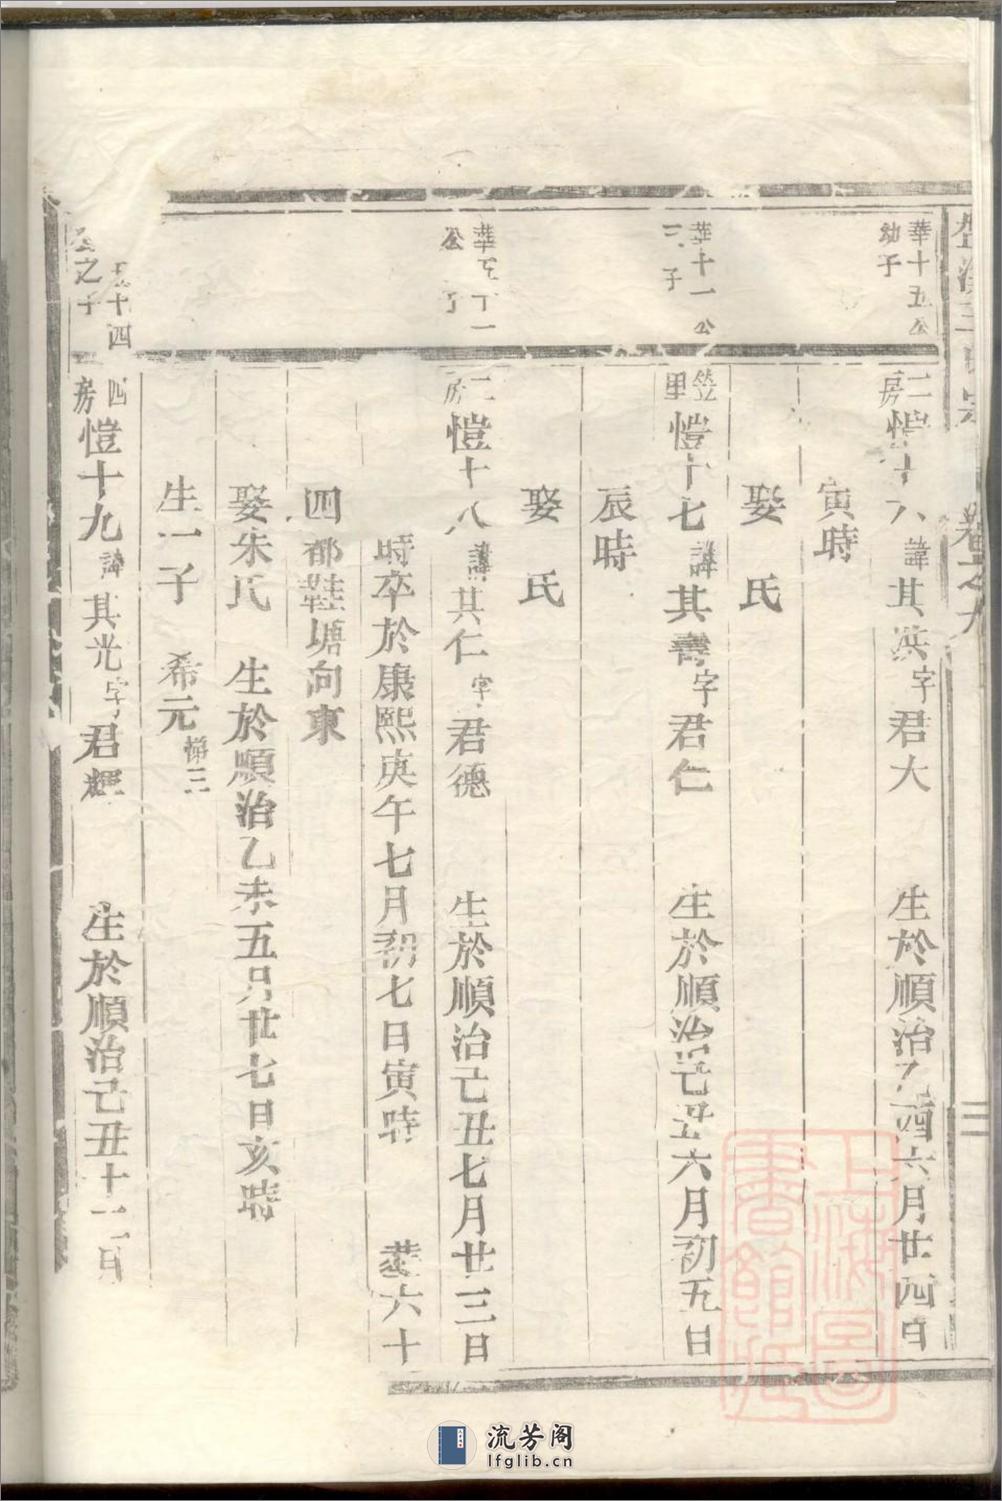 卷之九
二
華十五公
幼子
二房愷十六諱其洪字君大 生於順治乙酉六月廿四日
寅時
娶 氏
華十一公
子
笠里愷十七諱其壽字君仁 生於順治己丑六月初五日
辰時
娶 氏
公
二房愷十八諱其仁字君德 生於順治己丑七月廿三日
時卒於康熙庚午七月初七日寅時 葬六十
四都鞋塘向東
娶朱氏 生於順治乙未五月廿七日亥時
生一子 希元悌三
十四
公之子
四房愷十九諱其光字君輝 生於順治己丑十二月
上海圖書館藏
流芳阁
lfglib.cn